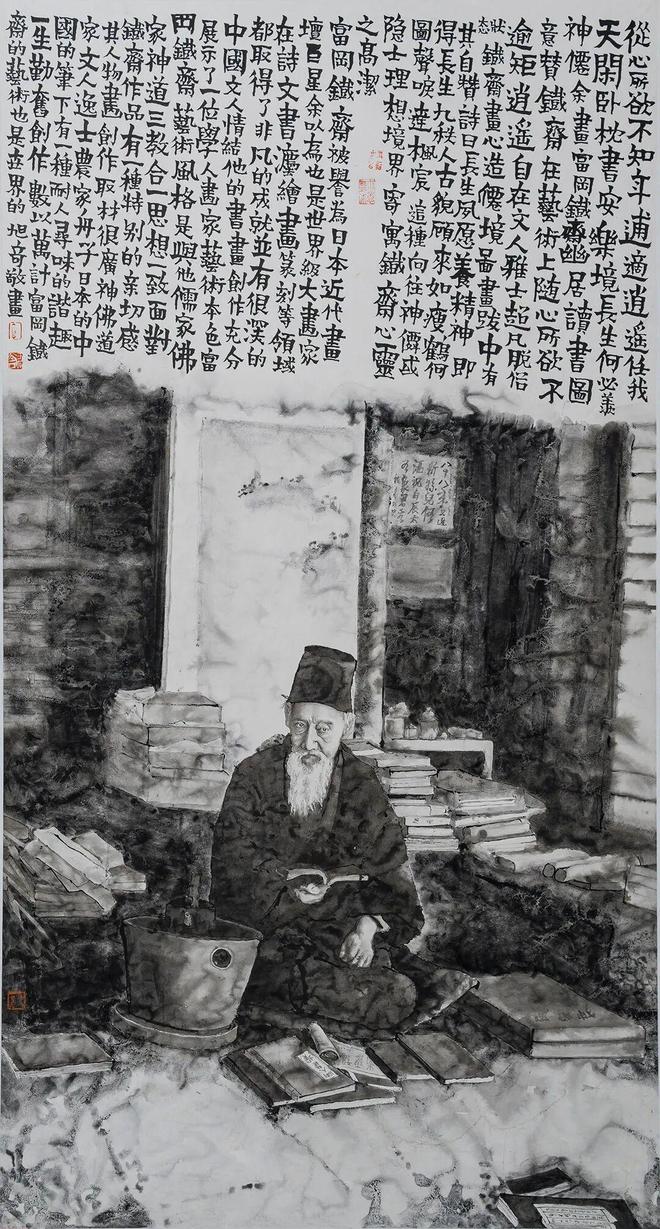 從心所欲不知年逋適逍遥任我
天閑卧枕書安樂境長生何必羡
神僊余畫富岡鐵齋幽居讀書圖
意贊鐵齋在藝術上隨心所欲不
逾矩逍遥自在文人雅士超凡脱俗
狀態鐵齋畫心造僊境畐畫跋中有
其自贊詩曰長生夙愿養精神即
得長生九秩人古貌頎來如瘦鶴何
圖聲唳達楓宸這種向往神僊或
隐士理想境界寄寓鐵齋心靈
之高潔
富岡鐵齋被譽為日本近代畫
壇巨星余以為也是世界級大畫家
在詩文書灋繪畫篆刻等領域
都取得了非凡的成就並有很深的
中國文人情結他的書畫創作充分
展示了一位學人畫家藝術本色富
岡鐵齋藝術風格是與他儒家佛
家神道三教合一思想一致面對
鐵齋作品有一種特别的亲切感
其人物畫創作取材很廣神佛道
家文人逸士農家舟子日本的中
國的筆下有一種耐人尋味的諧趣
一生勤奮創作數以萬計富岡鐵
齋的藝術也是世界的旭奇敬畫